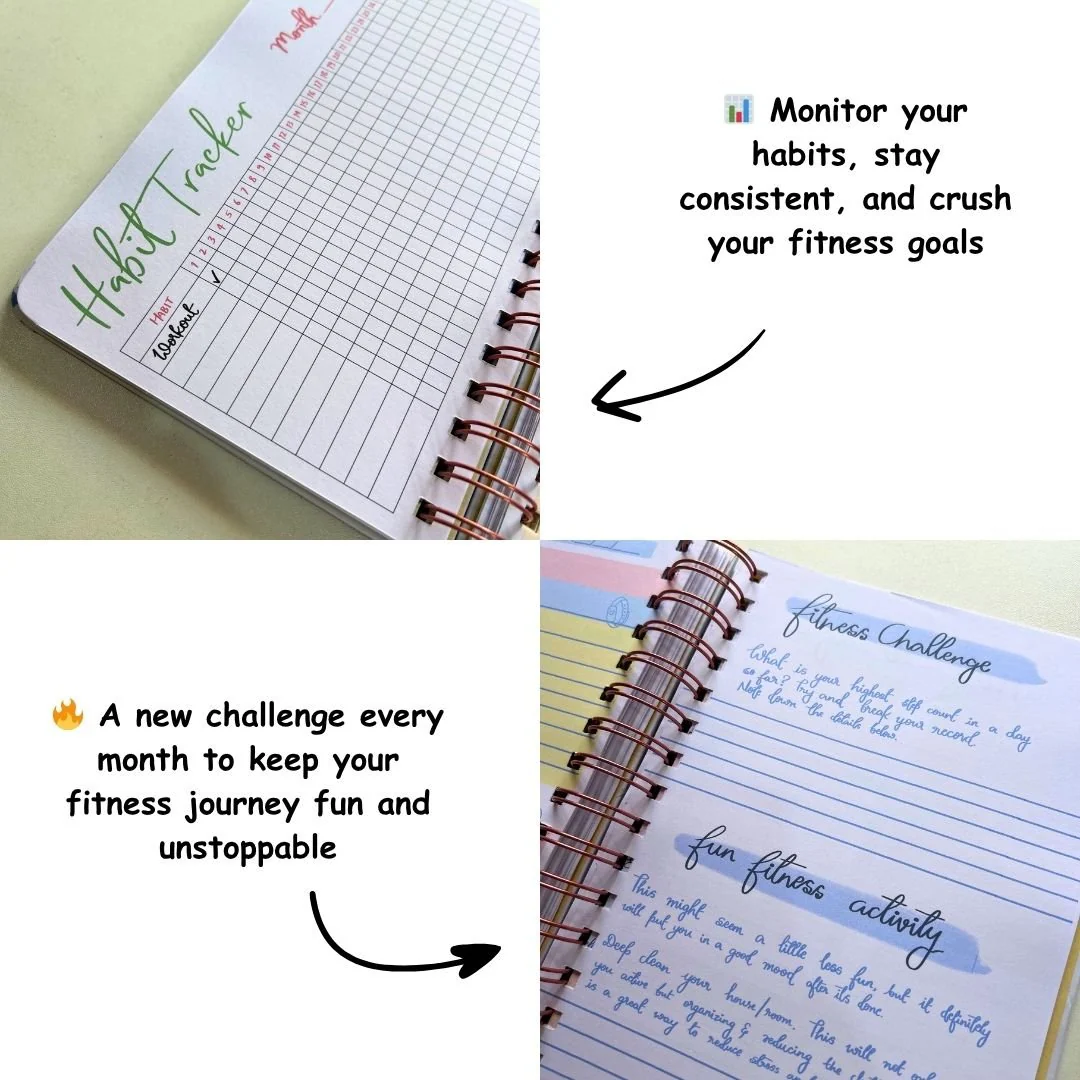 Month
Habit Tracker
HABIT 1 2 3 4 5 6 7 8 9 10 11 12 13 14 15 16 17 18 19 20 21 22 23 24
Workout ✓
📊 Monitor your
habits, stay
consistent, and crush
your fitness goals
🔥 A new challenge every
month to keep your
fitness journey fun and
unstoppable
fitness Challenge
What is your highest step count in a day
so far? Try and break your record.
Note down the details below.
fun fitness activity
This might seem a little less fun, but it definitely
will put you in a good mood after its done.
Deep clean your house/room. This will not only
you active but organizing & reducing the
is a great way to reduce stress